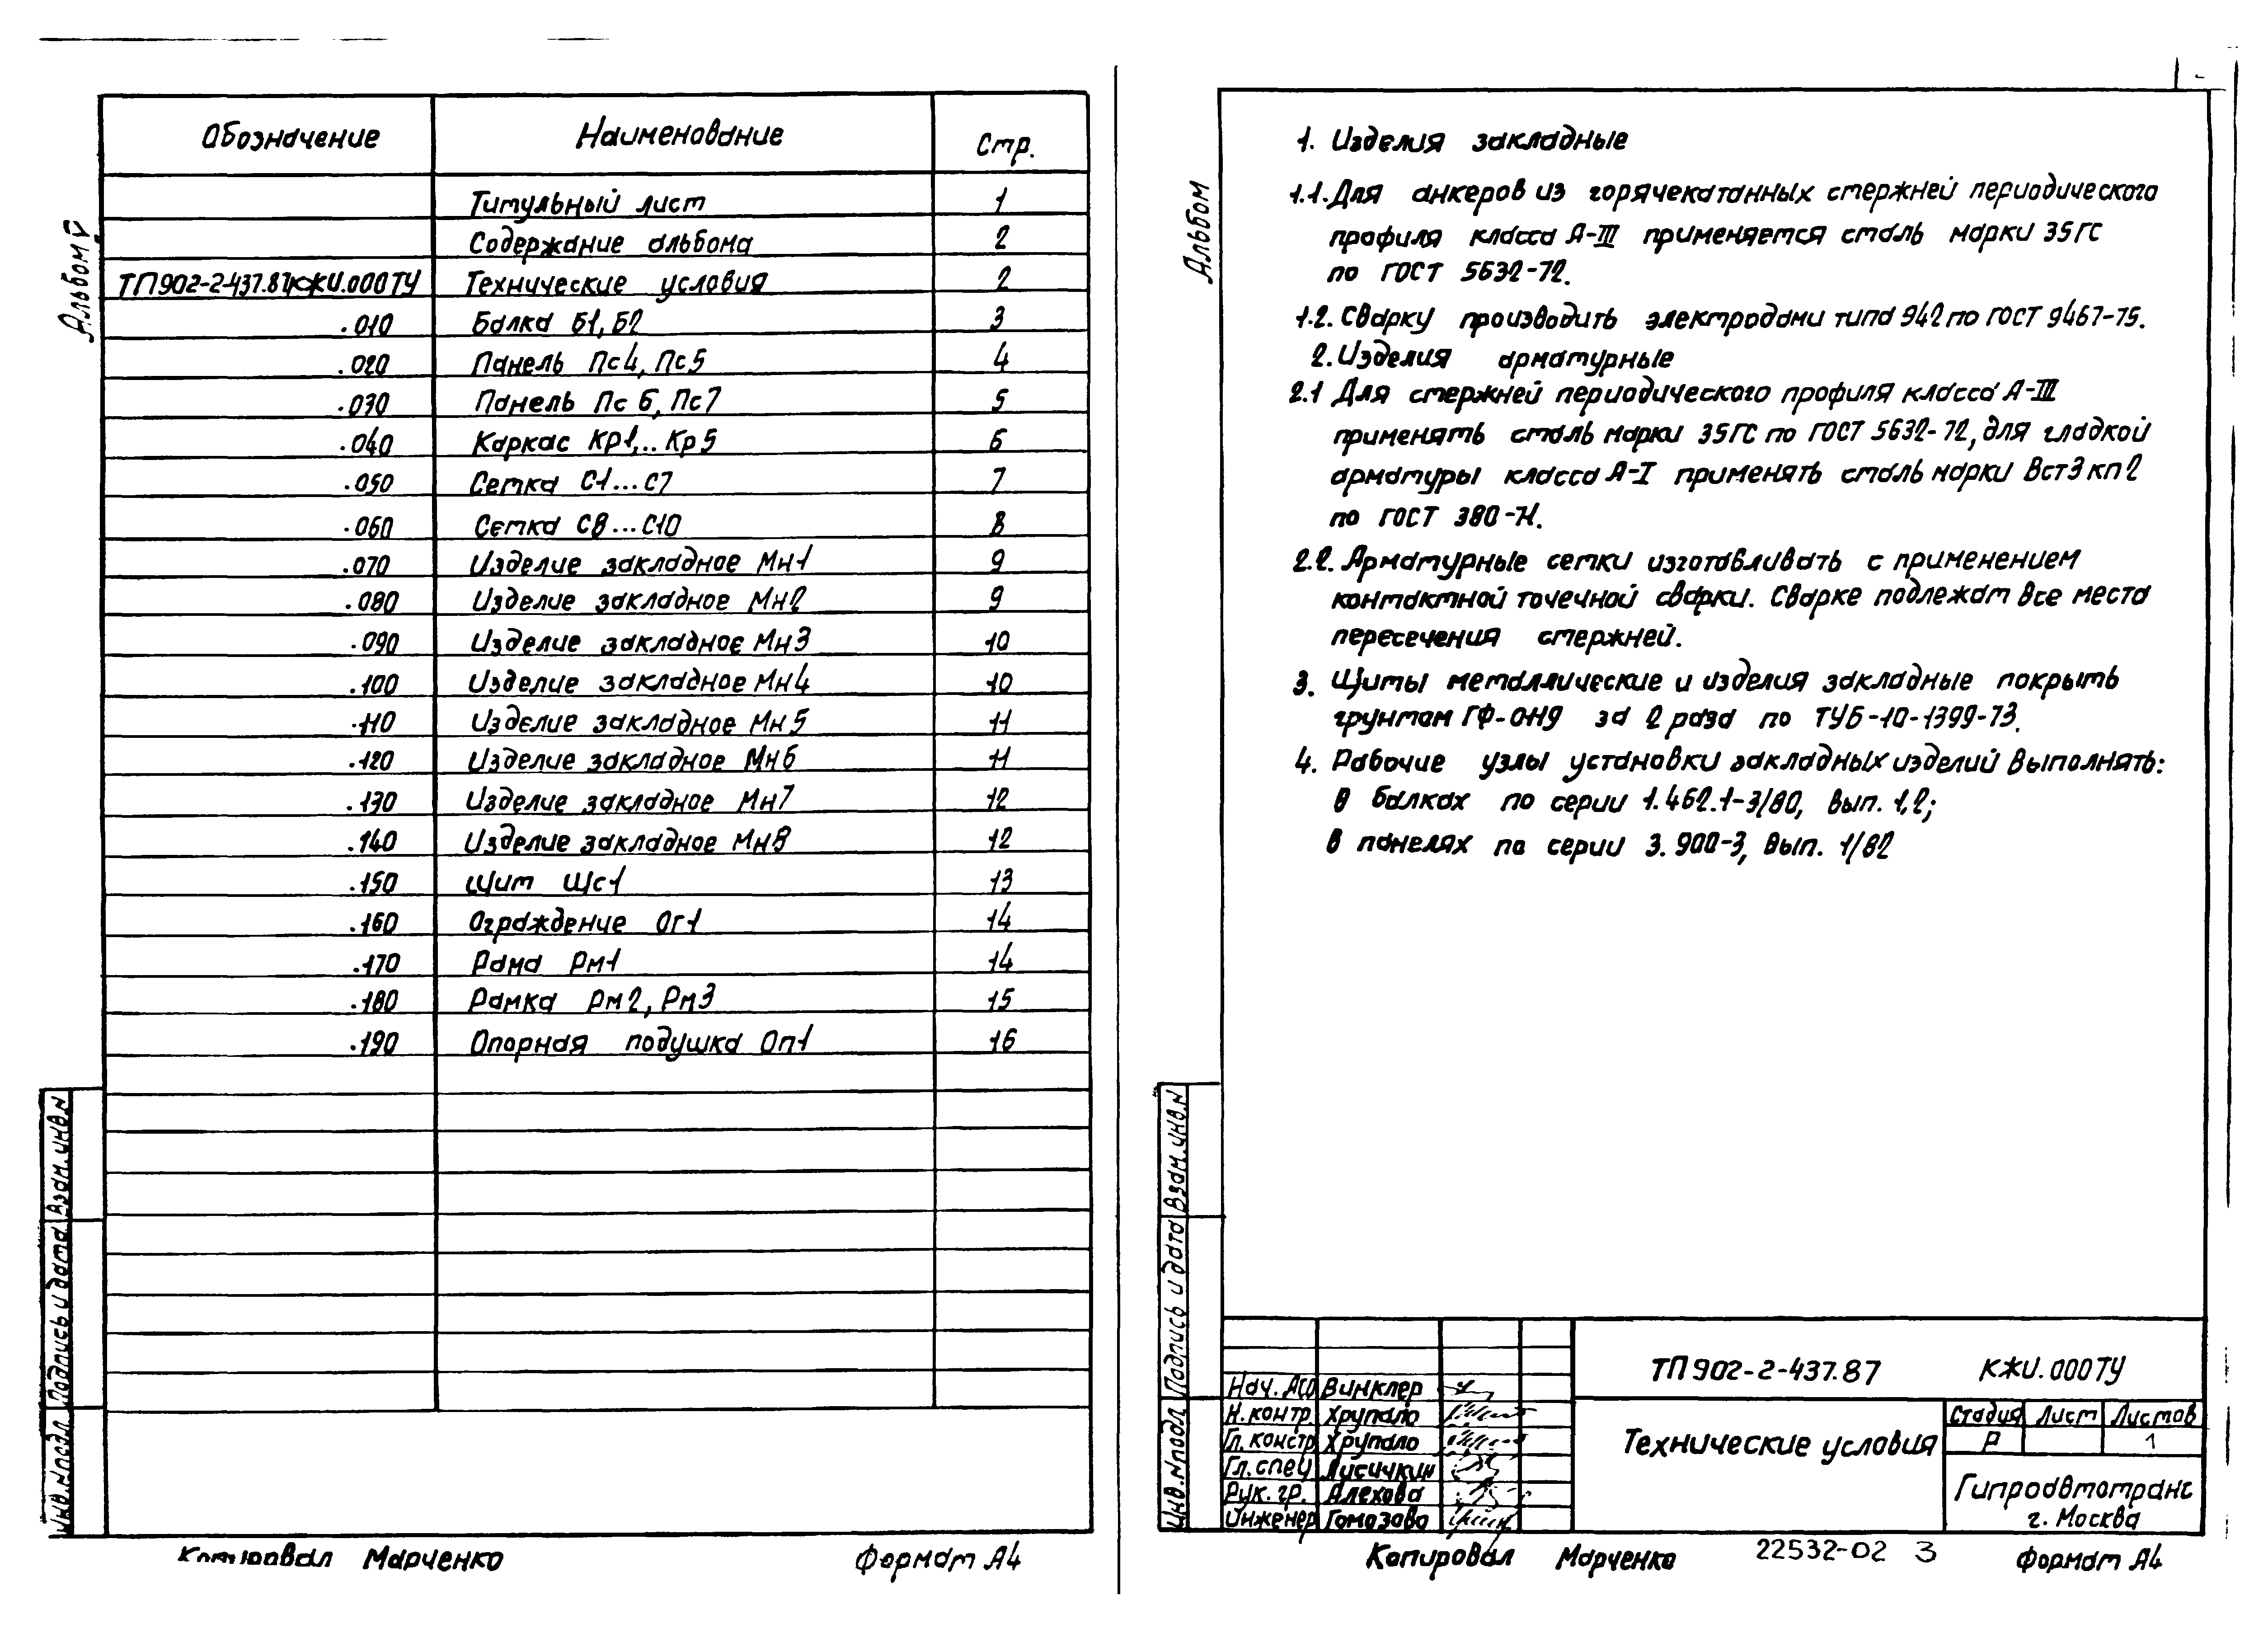 Альбом V
Обозначение Наименование Стр.
Титульный лист 1
Содержание альбома 2
ТП902-2-437.87КЖИ.000ТУ Технические условия 2
.010 Балка Б1, Б2 3
.020 Панель Пс4, Пс5 4
.030 Панель Пс6, Пс7 5
.040 Каркас Кр1,.. Кр5 6
.050 Сетка С1...С7 7
.060 Сетка С8...С10 8
.070 Изделие закладное Мн1 9
.080 Изделие закладное Мн2 9
.090 Изделие закладное Мн3 10
.100 Изделие закладное Мн4 10
.110 Изделие закладное Мн5 11
.120 Изделие закладное Мн6 11
.130 Изделие закладное Мн7 12
.140 Изделие закладное Мн8 12
.150 Щит Щс1 13
.160 Ограждение Ог1 14
.170 Рама Рм1 14
.180 Рамка Рм2, Рм3 15
.190 Опорная подушка Оп1 16
Взам. инв. N
Подпись и дата
Инв. N подл
Копировал Марченко Формат А4
Альбом
1. Изделия закладные
1.1. Для анкеров из горячекатанных стержней периодического
профиля класса А-III применяется сталь марки 35ГС
по ГОСТ 5632-72.
1.2. Сварку производить электродами типа Э42 по ГОСТ 9467-75.
2. Изделия арматурные
2.1 Для стержней периодического профиля класса А-III
применять сталь марки 35ГС по ГОСТ 5632-72, для гладкой
арматуры класса А-I применять сталь марки Вст3кп2
по ГОСТ 380-71.
2.2. Арматурные сетки изготавливать с применением
контактной точечной сварки. Сварке подлежат все места
пересечения стержней.
3. Щиты металлические и изделия закладные покрыть
грунтом ГФ-0119 за 2 раза по ТУ6-10-1399-73.
4. Рабочие узлы установки закладных изделий выполнять:
в балках по серии 1.462.1-3/80, вып. 1,2;
в панелях по серии 3.900-3, вып. 1/82
Взам. инв. N
Подпись и дата
Инв. N подл
ТП902-2-437.87 КЖИ.000ТУ
Нач. АСО Винклер
Н. контр. Хрупало
Гл. констр Хрупало
Гл. спец Лисичкин
Рук. гр. Алехова
Инженер Гомозова
Технические условия
Стадия Лист Листов
Р 1
Гипроавтотранс
г. Москва
Копировал Марченко 22532-02 3 Формат А4